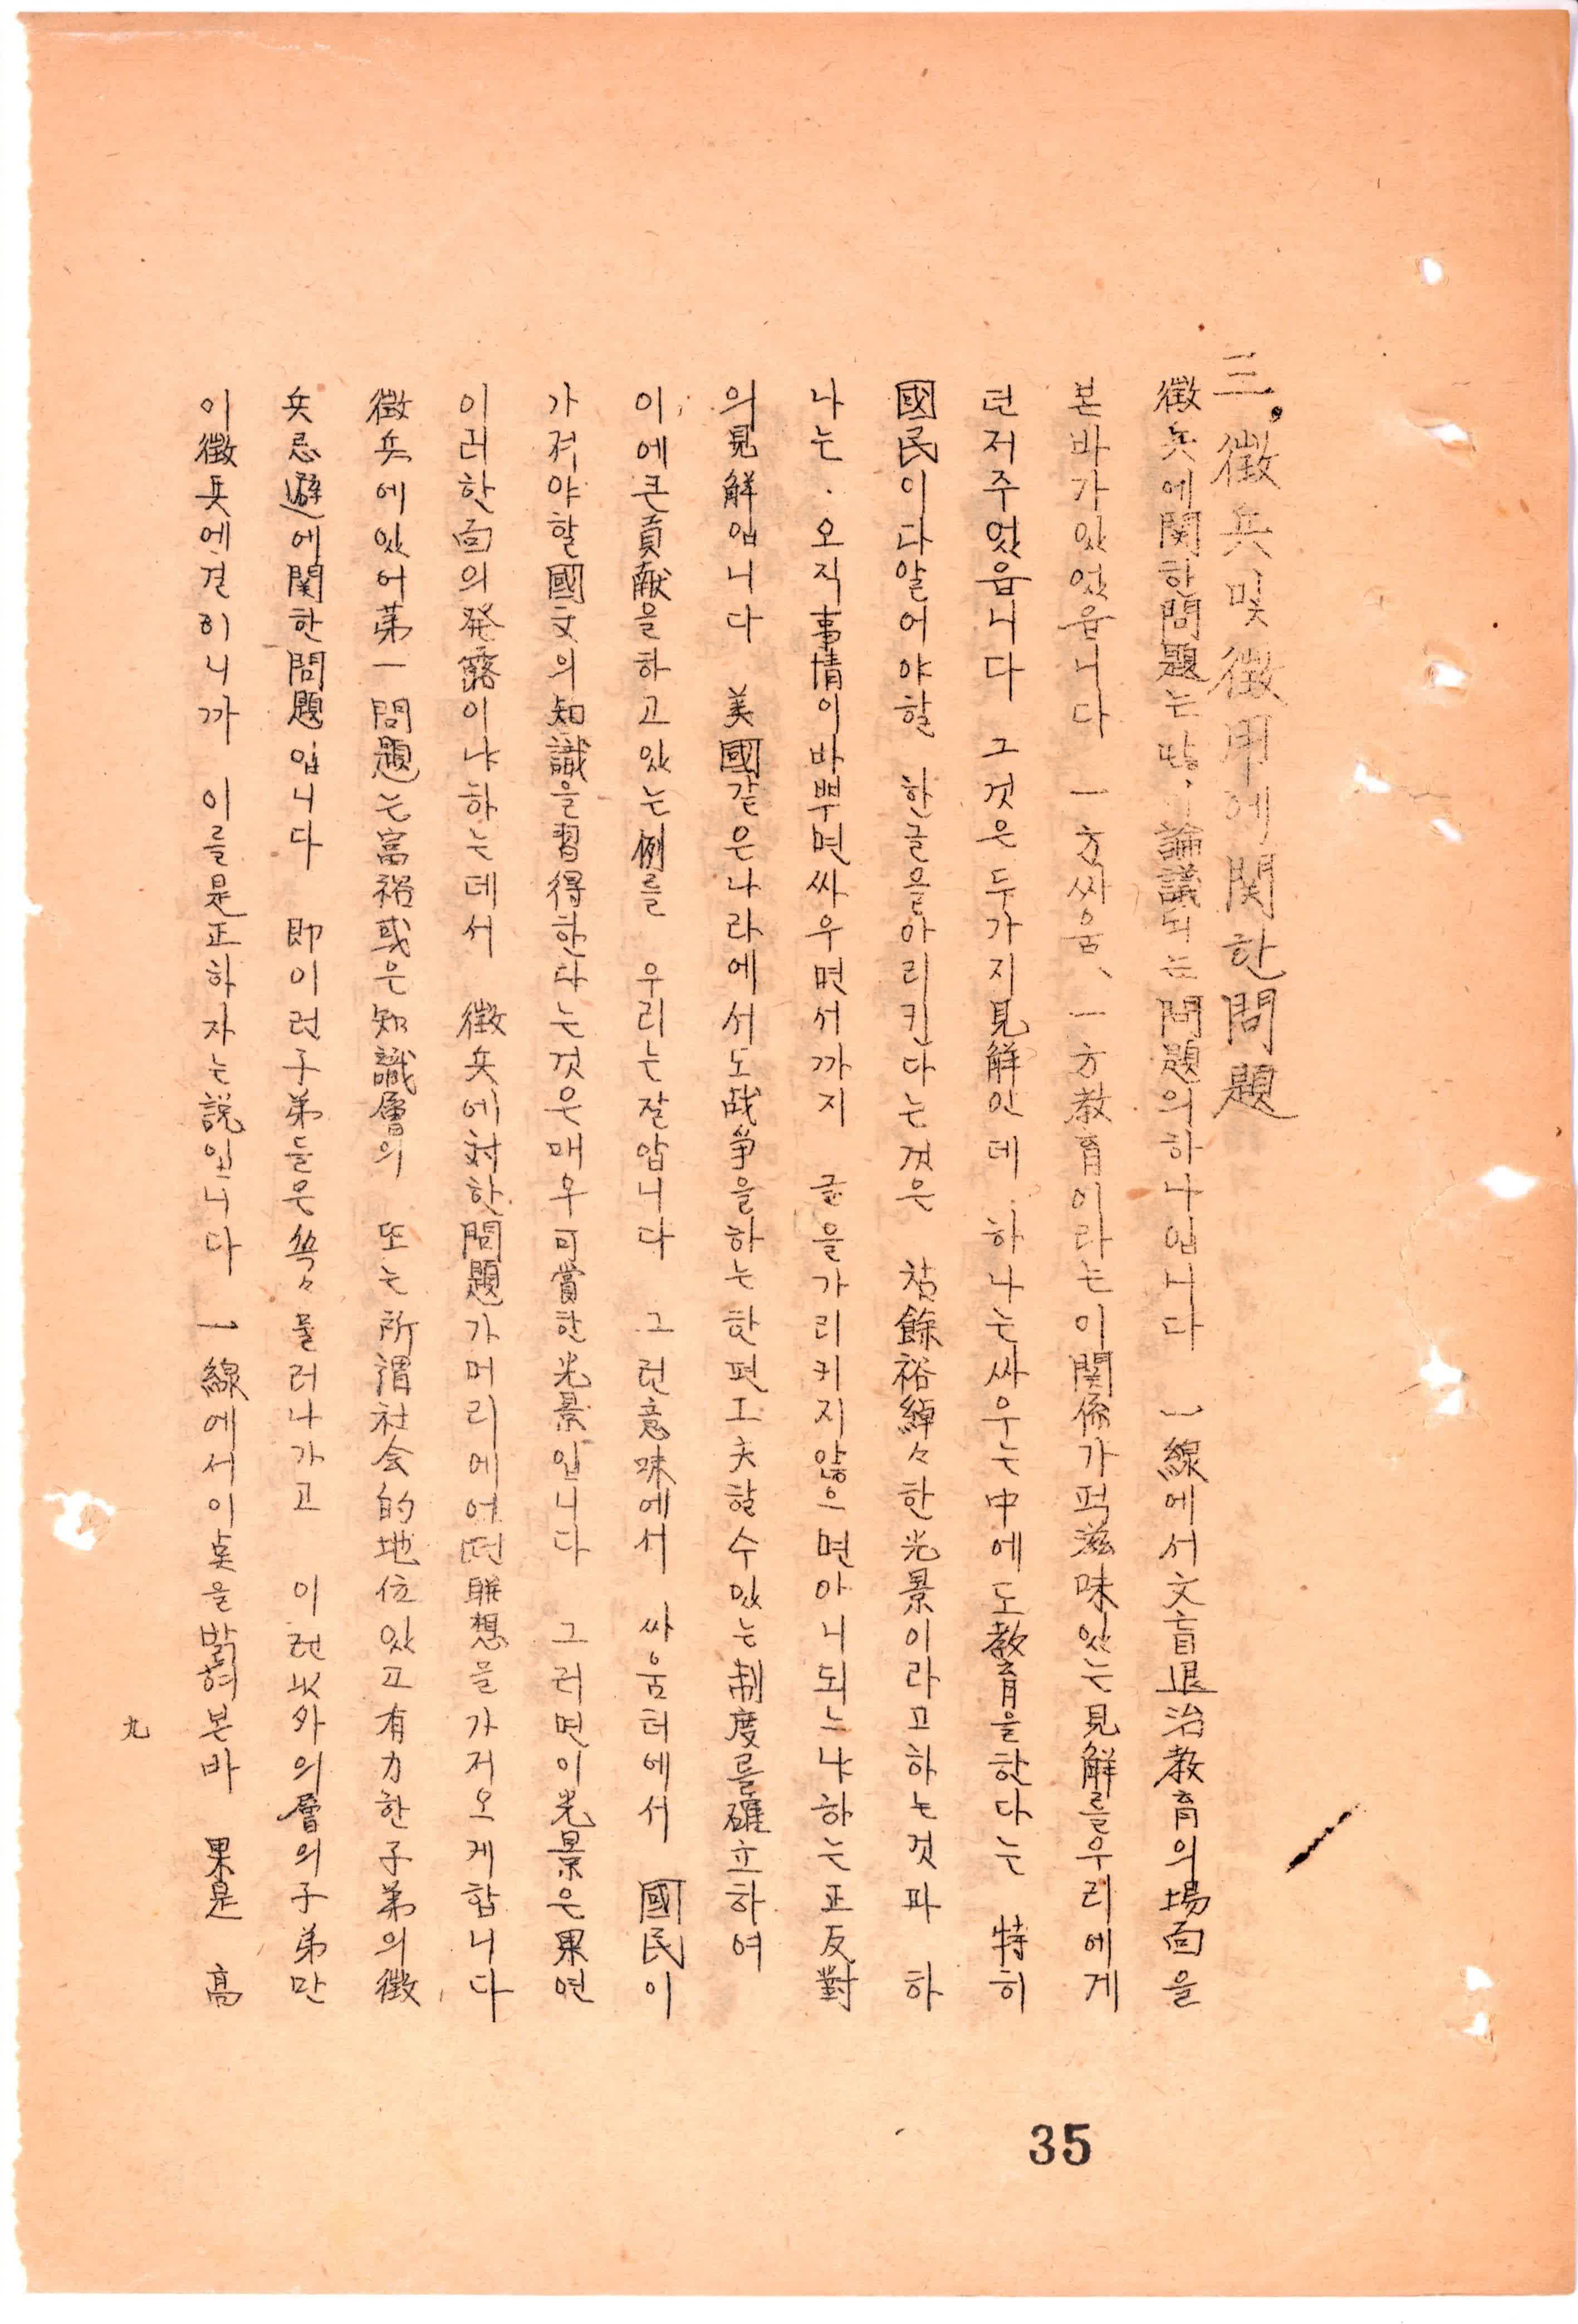 三. 徵兵및徵用에関한問題
徵兵에関한問題는많이論議되는問題의하나입니다 一線에서文盲退治教育의場面을
본바가있었읍니다 一方싸움、一方教育이라는이関係가퍽滋味있는見解를우리에게
던저주었읍니다 그것은두가지見解인데 하나는싸우는中에도教育을한다는 特히
國民이다알어야할 한글을아리킨다는것은 참餘裕綽々한光景이라고하는것과 하
나는 오직事情이바뿌면싸우면서까지 글을가리키지않으면아니되느냐하는正反對
의見解입니다 美國같은나라에서도战争을하는한편工夫할수있는制度를確立하여
이에큰貢献을하고있는例를 우리는잘압니다 그런意味에서 싸움터에서 國民이
가져야할國文의知識을習得한다는것은매우可賞한光景입니다 그러면이光景은果연
이러한面의発露이냐하는데서 徵兵에対한問題가머리에어떤聯想을가저오게합니다
徵兵에있어苐一問題는富裕或은知識層의 또는所謂社会的地位있고有力한子弟의徵
兵忌避에関한問題입니다 即이런子弟들은쏙々물러나가고 이런以外의層의子弟만
이徵兵에걸히니까 이를是正하자는説입니다 一線에서이点을밝혀본바 果是 高
九
35